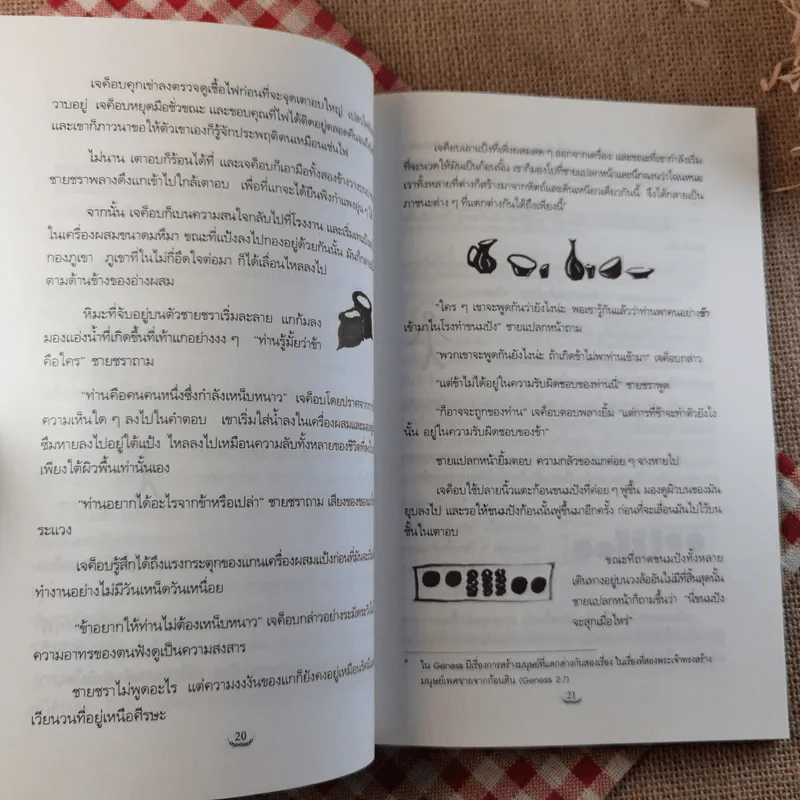 เจค็อบคุกเข่าลงตรวจดูเชื้อไฟก่อนที่จะจุดเตาอบใหญ่
วาบอยู่ เจค็อบหยุดมือชั่วขณะ และขอบคุณที่ไฟได้ติดอยู่ตลอดคืน
และเขาก็ภาวนาขอให้ตัวเขาเองก็รู้จักประพฤติตนเหมือนเช่นไฟ
ไม่นาน เตาอบก็ร้อนได้ที่ และเจค็อบก็เอามือทั้งสองข้างวาง
ชายชราพลางดึงแกเข้าไปใกล้เตาอบ เพื่อที่แกจะได้ยืนพิงกำแพงอุ่น ๆ ได้
จากนั้น เจค็อบก็เบนความสนใจกลับไปที่โรงงาน และเริ่มเทแป้ง
ในเครื่องผสมขนาดมหึมา ขณะที่แป้งลงไปกองอยู่ด้วยกันนั้น มันก็
กองภูเขา ภูเขาที่ในไม่กี่อึดใจต่อมา ก็ได้เลื่อนไหลลงไป
ตามด้านข้างของอ่างผสม
หิมะที่จับอยู่บนตัวชายชราเริ่มละลาย แกก้มลง
มองแอ่งน้ำที่เกิดขึ้นที่เท้าแกอย่างงง ๆ "ท่านรู้มั้ยว่าข้า
คือใคร" ชายชราถาม
"ท่านคือคนคนหนึ่งซึ่งกำลังเหน็บหนาว" เจค็อบโดยปราศจาก
ความเห็นใด ๆ ลงไปในคำตอบ เขาเริ่มใส่น้ำลงในเครื่องผสมและมอง
ซึมหายลงไปอยู่ใต้แป้ง ไหลลงไปเหมือนความลับทั้งหลายของชีวิตที่
เพียงใต้ผิวพื้นเท่านั้นเอง
"ท่านอยากได้อะไรจากข้าหรือเปล่า" ชายชราถาม เสียงของ
ระแวง
เจค็อบรู้สึกได้ถึงแรงกระตุกของแกนเครื่องผสมแป้งก่อนที่มันจะ
ทำงานอย่างไม่มีวันเหน็ดวันเหนื่อย
"ข้าอยากให้ท่านไม่ต้องเหน็บหนาว" เจค็อบกล่าวอย่างระมัดระวัง
ความอาทรของตนฟังดูเป็นความสงสาร
ชายชราไม่พูดอะไร แต่ความงงงันของแกก็ยังคงอยู่เหมือน
เวียนวนที่อยู่เหนือศีรษะ
20
เจค็อบเอาแป้งที่เพิ่งผสมสด ๆ ออกจากเครื่อง และขณะที่เขากำลังเริ่ม
ที่จะนวดให้มันเป็นก้อนนั้น เขาก็มองไปที่ชายแปลกหน้าและนึกฉงนว่าไฉนหนอ
เราทั้งหลายที่ต่างก็สร้างมาจากหัตถ์และดินเหนียวเดียวกันนี้ จึงได้กลายเป็น
ภาชนะต่าง ๆ ที่แตกต่างกันได้ถึงเพียงนี้*
"ใคร ๆ เขาจะพูดกันว่ายังไงน่ะ พอเขารู้กันแล้วว่าท่านพาคนอย่างข้า
เข้ามาในโรงทำขนมปัง" ชายแปลกหน้าถาม
"พวกเขาจะพูดกันยังไงน่ะ ถ้าเกิดข้าไม่พาท่านเข้ามา" เจค็อบกล่าว
"แต่ข้าไม่ได้อยู่ในความรับผิดชอบของท่านนี่" ชายชราพูด
"ก็อาจจะถูกของท่าน" เจค็อบตอบพลางยิ้ม "แต่การที่ข้าจะทำตัวยังไง
นั้น อยู่ในความรับผิดชอบของข้า"
ชายแปลกหน้ายิ้มตอบ ความกลัวของแกค่อย ๆ จางหายไป
เจค็อบใช้ปลายนิ้วแตะก้อนขนมปังที่ค่อย ๆ ฟูขึ้น มองดูผิวบนของมัน
ยุบลงไป และรอให้ขนมปังก้อนนั้นฟูขึ้นมาอีกครั้ง ก่อนที่จะเลื่อนมันไปไว้บน
ชั้นในเตาอบ
ขณะที่ถาดขนมปังทั้งหลาย
เดินทางอยู่บนวงล้ออันไม่มีที่สิ้นสุดนั้น
ชายแปลกหน้าก็ถามขึ้นว่า "นี่ขนมปัง
จะสุกเมื่อไหร่"
* ใน Genesis มีเรื่องการสร้างมนุษย์ที่แตกต่างกันสองเรื่อง ในเรื่องที่สองพระเจ้าทรงสร้าง
มนุษย์เพศชายจากก้อนดิน (Genesis 2:7)
21